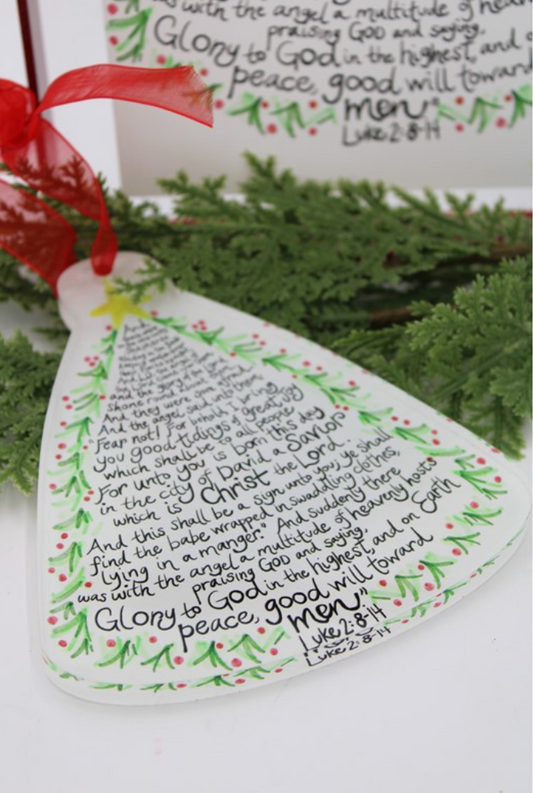 was with the angel a multitude of heav
praising GOD and saying,
Glory to God in the highest, and o
peace, good will toward
men"
Luke 2:8-14
And they were
And the angel said unto them
"Fear not! For behold I bring
you good tidings of great joy
which shall be to all people.
For unto you is born this day
in the city of David a Savior
which is Christ the Lord.
And this shall be a sign unto you, ye shall
find the babe wrapped in swaddling clothes,
lying in a manger." And suddenly there
was with the angel a multitude of heavenly hosts
praising GOD and saying,
Glory to God in the highest, and on Earth
peace, good will toward
men"
Luke 2:8-14
Luke 2:8-14